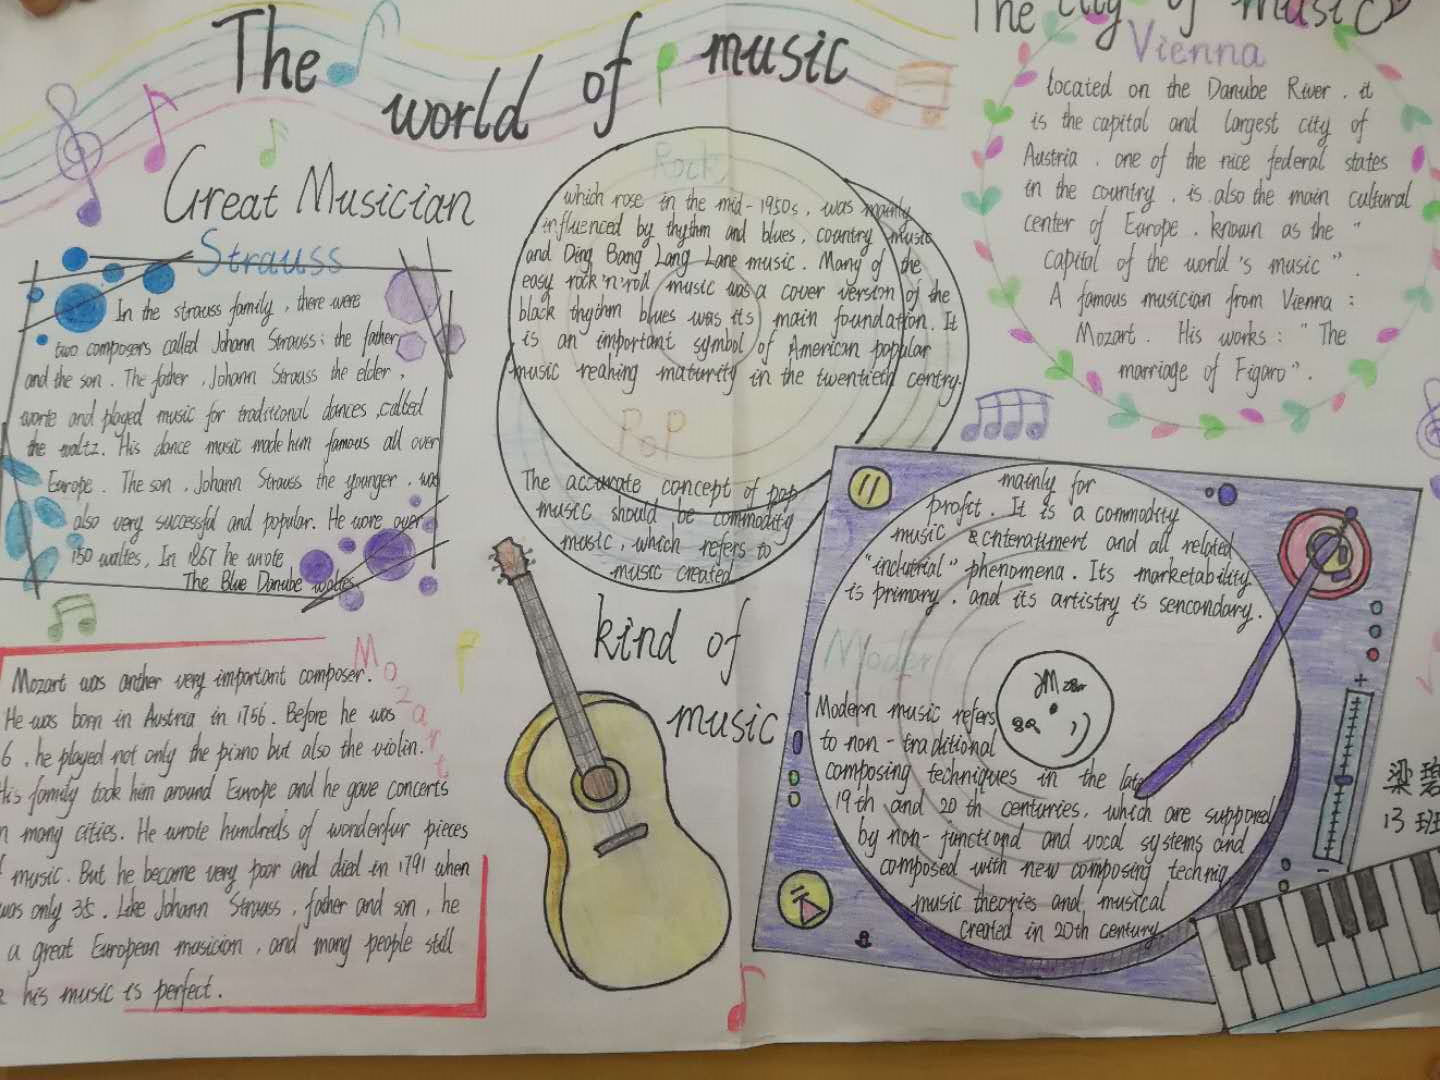 The world of music
Great Musician
Strauss
In the strauss family, there were
two composers called Johann Strauss: the father
and the son. The father, Johann Strauss the elder,
worte and played music for traditional dances, called
the waltz. His dance music made him famous all over
Europe. The son, Johann Strauss the younger, was
also very successful and popular. He wore over
150 waltes, In 1867 he wrote
The Blue Danube waltes.
Mozart
Mozart was anther very important composer.
He was born in Austria in 1756. Before he was
6, he played not only the piano but also the violin.
His family took him around Europe and he gave concerts
many cities. He wrote hundreds of wonderfur pieces
music. But he became very poor and died in 1791 when
was only 35. Like Johann Strauss, father and son, he
a great European musician, and many people still
his music is perfect.
Rock
which rose in the mid-1950s, was mainly
influenced by thythm and blues, country music
and Ding Bang Lang Lane music. Many of the
easy rock 'n' roll music was a cover version of the
black thythm blues was its main foundation. It
is an important symbol of American popular
music reahing maturity in the twentieth centry.
PoP
The accurate concept of pop
music should be commodity
music, which refers to
music created
kind of
music
The city of music
Vienna
located on the Danube River. it
is the capital and largest city of
Austria. one of the nice federal states
in the country. is also the main cultural
center of Europe. known as the "
capital of the world's music".
A famous musician from Vienna:
Mozart. His works: "The
marriage of Figaro".
mainly for
profit. It is a commodity
music and all related
phenomena. Its marketability
is primary. and its artistry is sencondary.
Moder
Modern music refers
to non-traditional
composing techniques in the late
19th and 20th centuries, which are suppored
by non-functiond and vocal systems and
composed with new composing techniq
music theories and musical
created in 20th century.
梁碧
13班